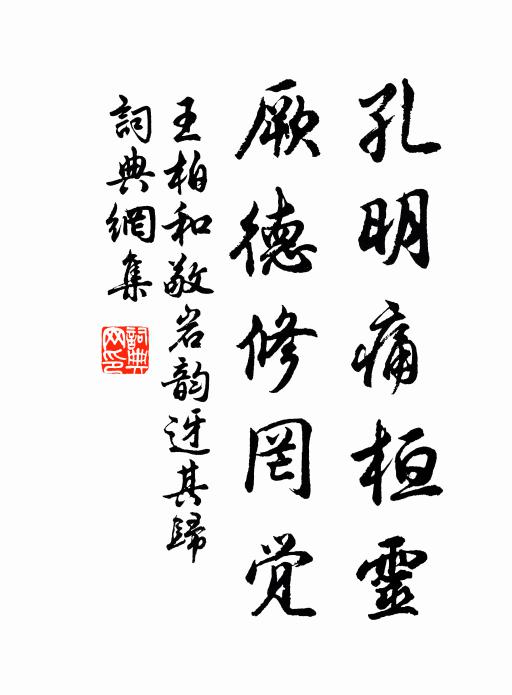 孔明痛桓靈
厥德修罔觉
王柏和敬岩韵迓其歸
詞典網集
詞典网印